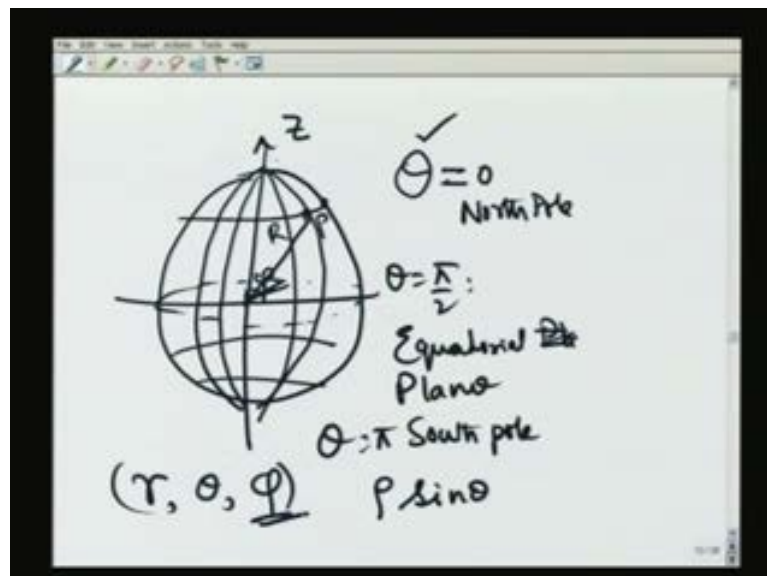 File Edit View Insert Actions Tools Help
Z
θ = 0
North Pole
R
P
θ = π/2 :
Equatorial
Plane
θ : π South pole
(r, θ, φ)
ρ sinθ